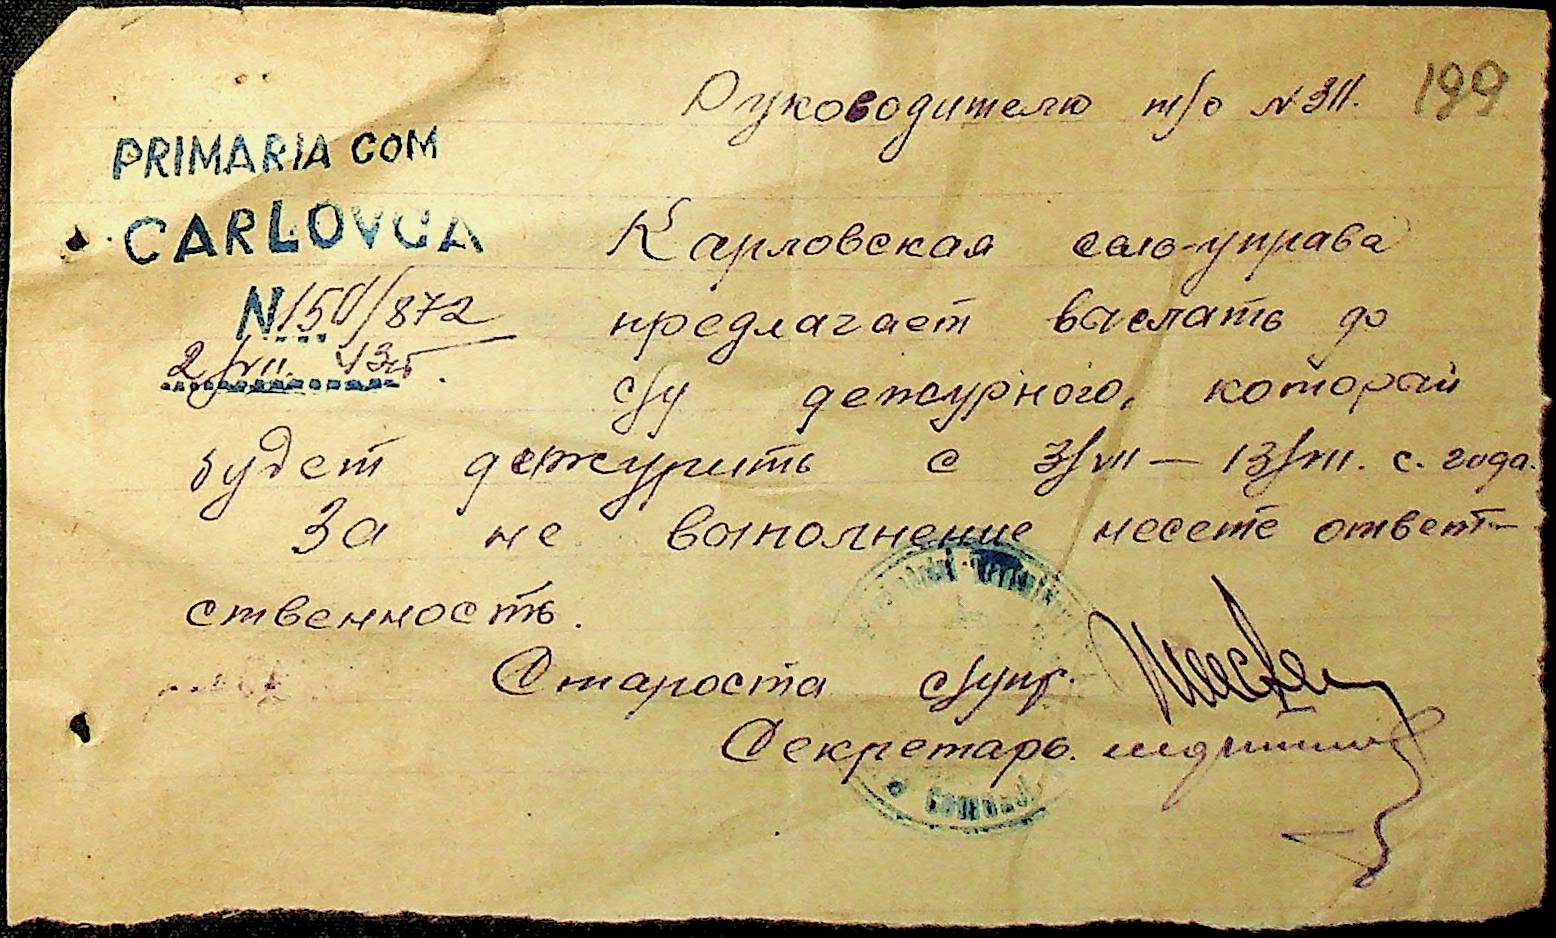 Руководителю т/о N 3П.
199
PRIMARIA COM
CARLOVCA
N 150/872
2/VII 43г.
Карловская сель-управа
предлагает выслать до
с/у дежурного, который
будет дежурить с 3/VII — 13/VII. с. года.
За не выполнение несете ответ-
ственность.
Староста с/упр.
Секретарь.